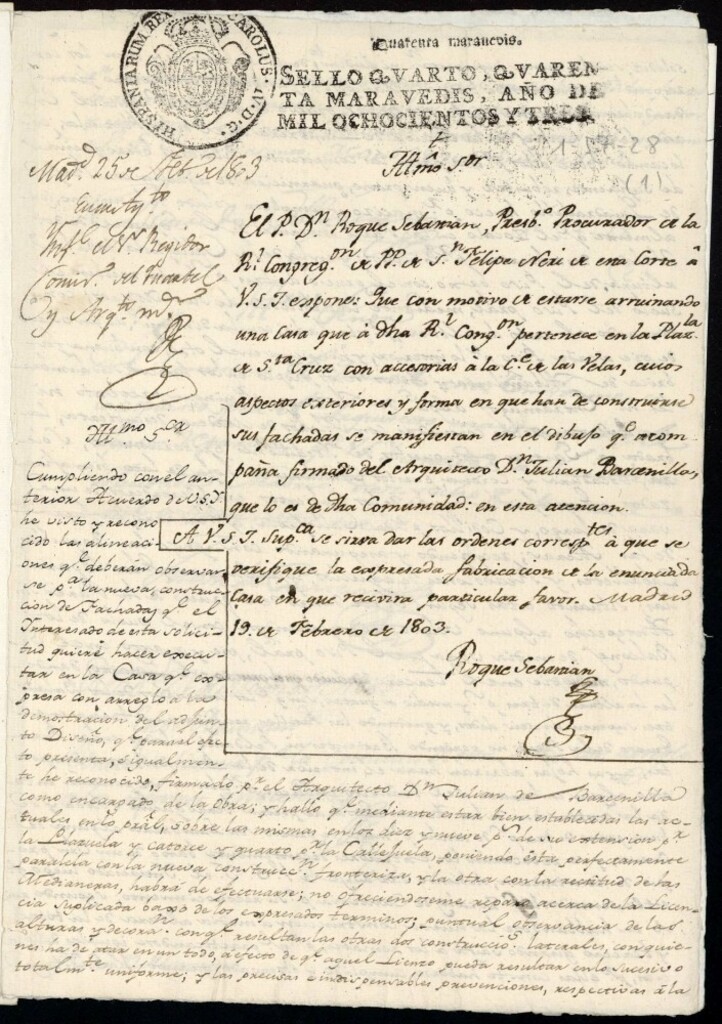 HISPANIARUM REX CAROLUS. IV. D. G.
Quarenta maravedis.
SELLO QVARTO, QVAREN-
TA MARAVEDIS, AÑO DE
MIL OCHOCIENTOS Y TRES.
157-28
(1)
Mad.d 25 de de 1803
Ynf.e el S.r Regidor
Comis.o del Quartel
y Arq.to m.r
Yllmo S.or
El P. D.n Roque Sebastian, Presb.o Procurador de la
R.l Congreg.on de PP. de S.n Felipe Neri de esta Corte â
V. S. I. espone: Que con motivo de estarse arruinando
una Casa que â dha R.l Cong.on pertenece en la Plaz.la
de S.ta Cruz con accesorias â la C.e de las Velas, cuios
aspectos exteriores y forma en que han de construirse
sus fachadas se manifiestan en el dibujo q.e acom-
paña firmado del Arquitecto D.n Julian Barcenilla,
que lo es de dha Comunidad: en esta atencion.
A V. S. I. Sup.ca se sirva dar las ordenes corresp.tes â que se
verifique la expresada fabricacion de la enunciada
Casa en que recivira particular favor. Madrid
19. de Febrero de 1803.
Roque Sebastian
Yllmo S.or
Cumpliendo con el an-
terior Acuerdo de V.S.Y.
he visto y recono-
cido las alineaci-
ones q.e deberán observar-
se p.a la nueva construc-
ción de Fachadas q.e el
Interesado de esta solici-
tud quiere hacer execu-
tar en la Casa q.e ex-
presa con arreglo a la
demostracion del adjun-
to Diseño, q.e para el efec-
to presenta, e igualmen-
te he reconocido, firmado p.r el Arquitecto D.n Julian de Barcenilla
como encargado de la Obra; y hallo q.e mediante estar bien establecidas las ac-
tuales en lo pral, sobre las mismas en los diez y nueve p.s de su extension p.r
la Plazuela y catorce y quarto p.r la Callejuela, poniendo esta perfectamente
paralela con la nueva construcc.n fronteriza, y la otra con la rectitud de las
Medianeras, habrá de efectuarse; no ofreciendoseme reparo acerca de la Licen-
cia suplicada baxo de los expresados terminos; puntual observancia de las
alturas y decorac.n con q.e resultan las otras dos construcció.s laterales, con quie-
nes ha de atar en un todo, a efecto de q.e aquel Lienzo pueda resultar en lo sucesivo
totalm.te uniforme; y las precisas e indispensables prevenciones, respectivas á la